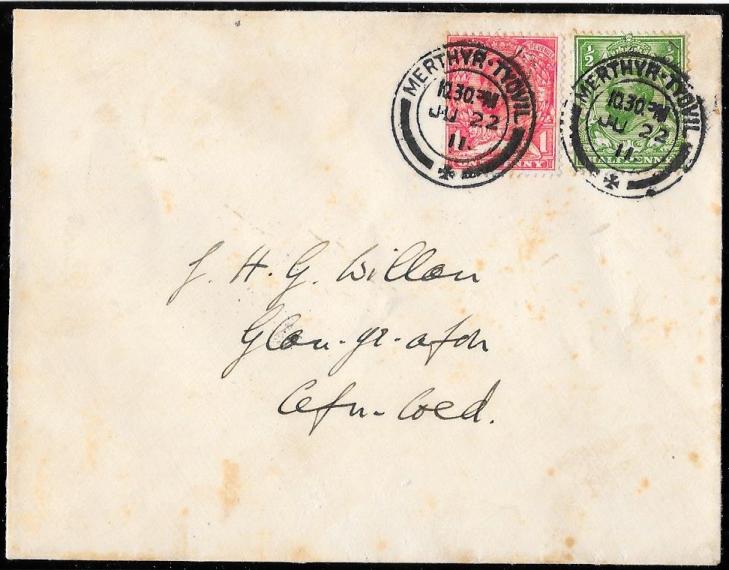 MERTHYR·TYDVIL
10.30PM
JU 22
11
ONE PENNY
1
MERTHYR·TYDVIL
10.30PM
JU 22
11
½
HALFPENNY
J. H. G. Willon
Glan-yr-afon
Cefn-Coed.